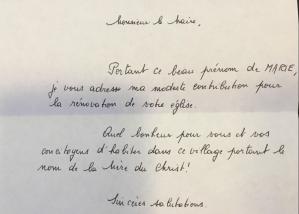 Monsieur le Maire,
Portant ce beau prénom de MARIE,
je vous adresse ma modeste contribution pour
la rénovation de votre église.
Quel bonheur pour vous et vos
concitoyens d'habiter dans ce village portant le
nom de la Mère du Christ!
Sincères salutations.